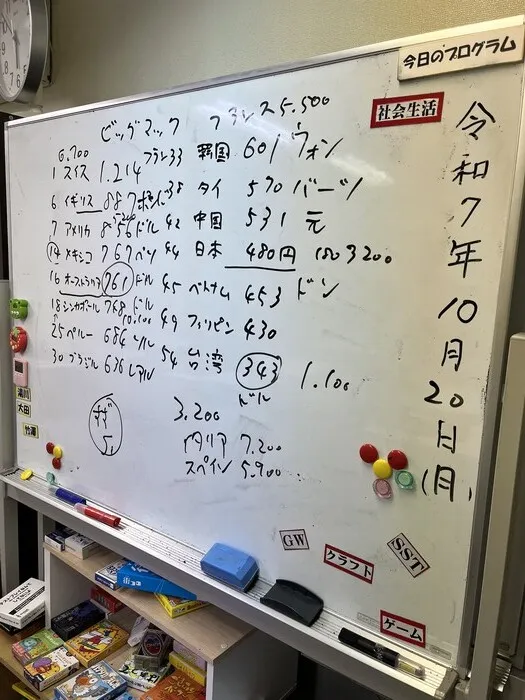 今日のプログラム
社会生活
令和7年10月20日(月)
フランス 5.500
ビッグマック
6.700
1 スイス 1.214 フラン
33 韓国 601 ウォン
6 イギリス 887
38 タイ 570 バーツ
7 アメリカ 856 ドル
42 中国 531 元
14 メキシコ 767 ペソ
44 日本 480円 180 3200
16 オーストラリア 761 ドル
45 ベトナム 453 ドン
18 シンガポール 748 ドル
10.100
49 フィリピン 430
25 ペルー 684 ソル
54 台湾 343 ドル 1.100
30 ブラジル 636 レアル
3.200
イタリア 7.200
スペイン 5.900
湯川
大田
竹澤
GW
クラフト
SST
ゲーム